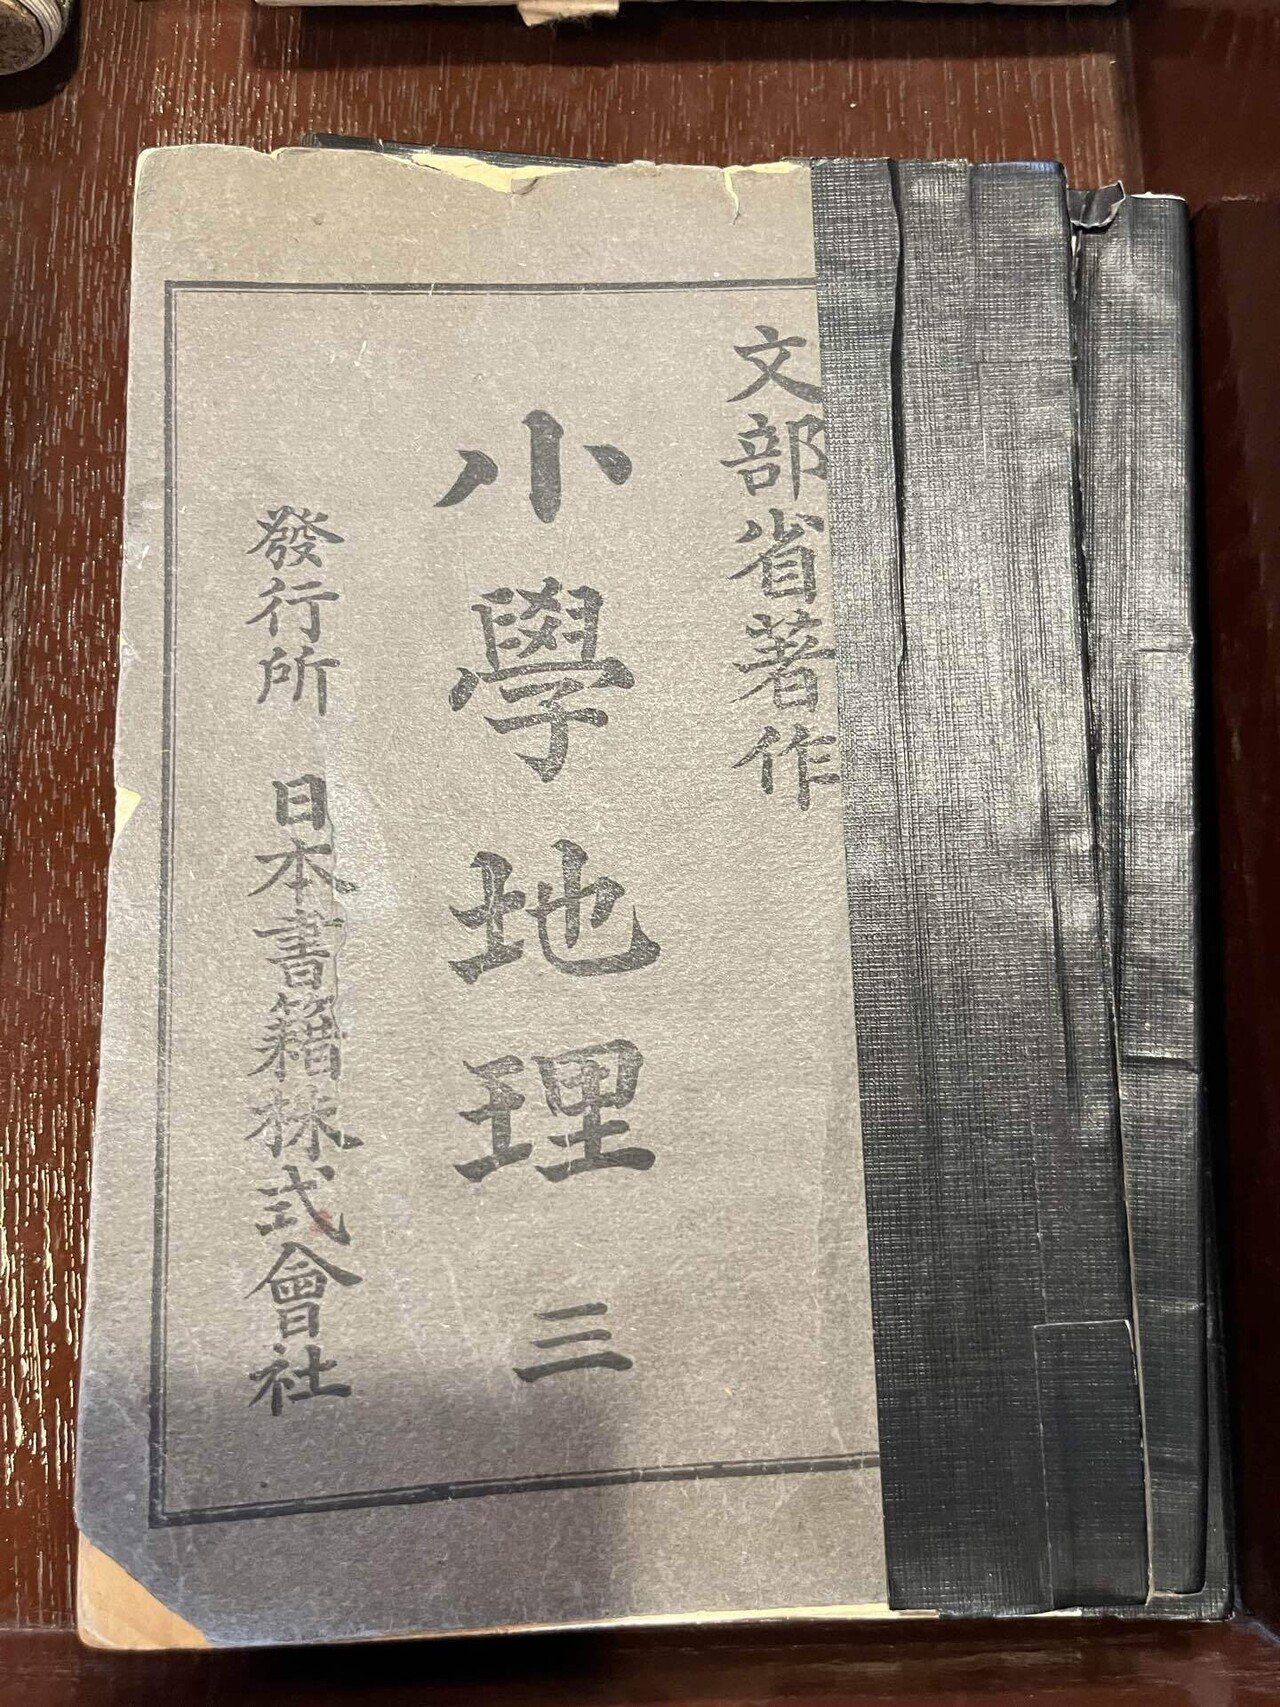 文部省著作
小學地理 三
發行所 日本書籍株式會社